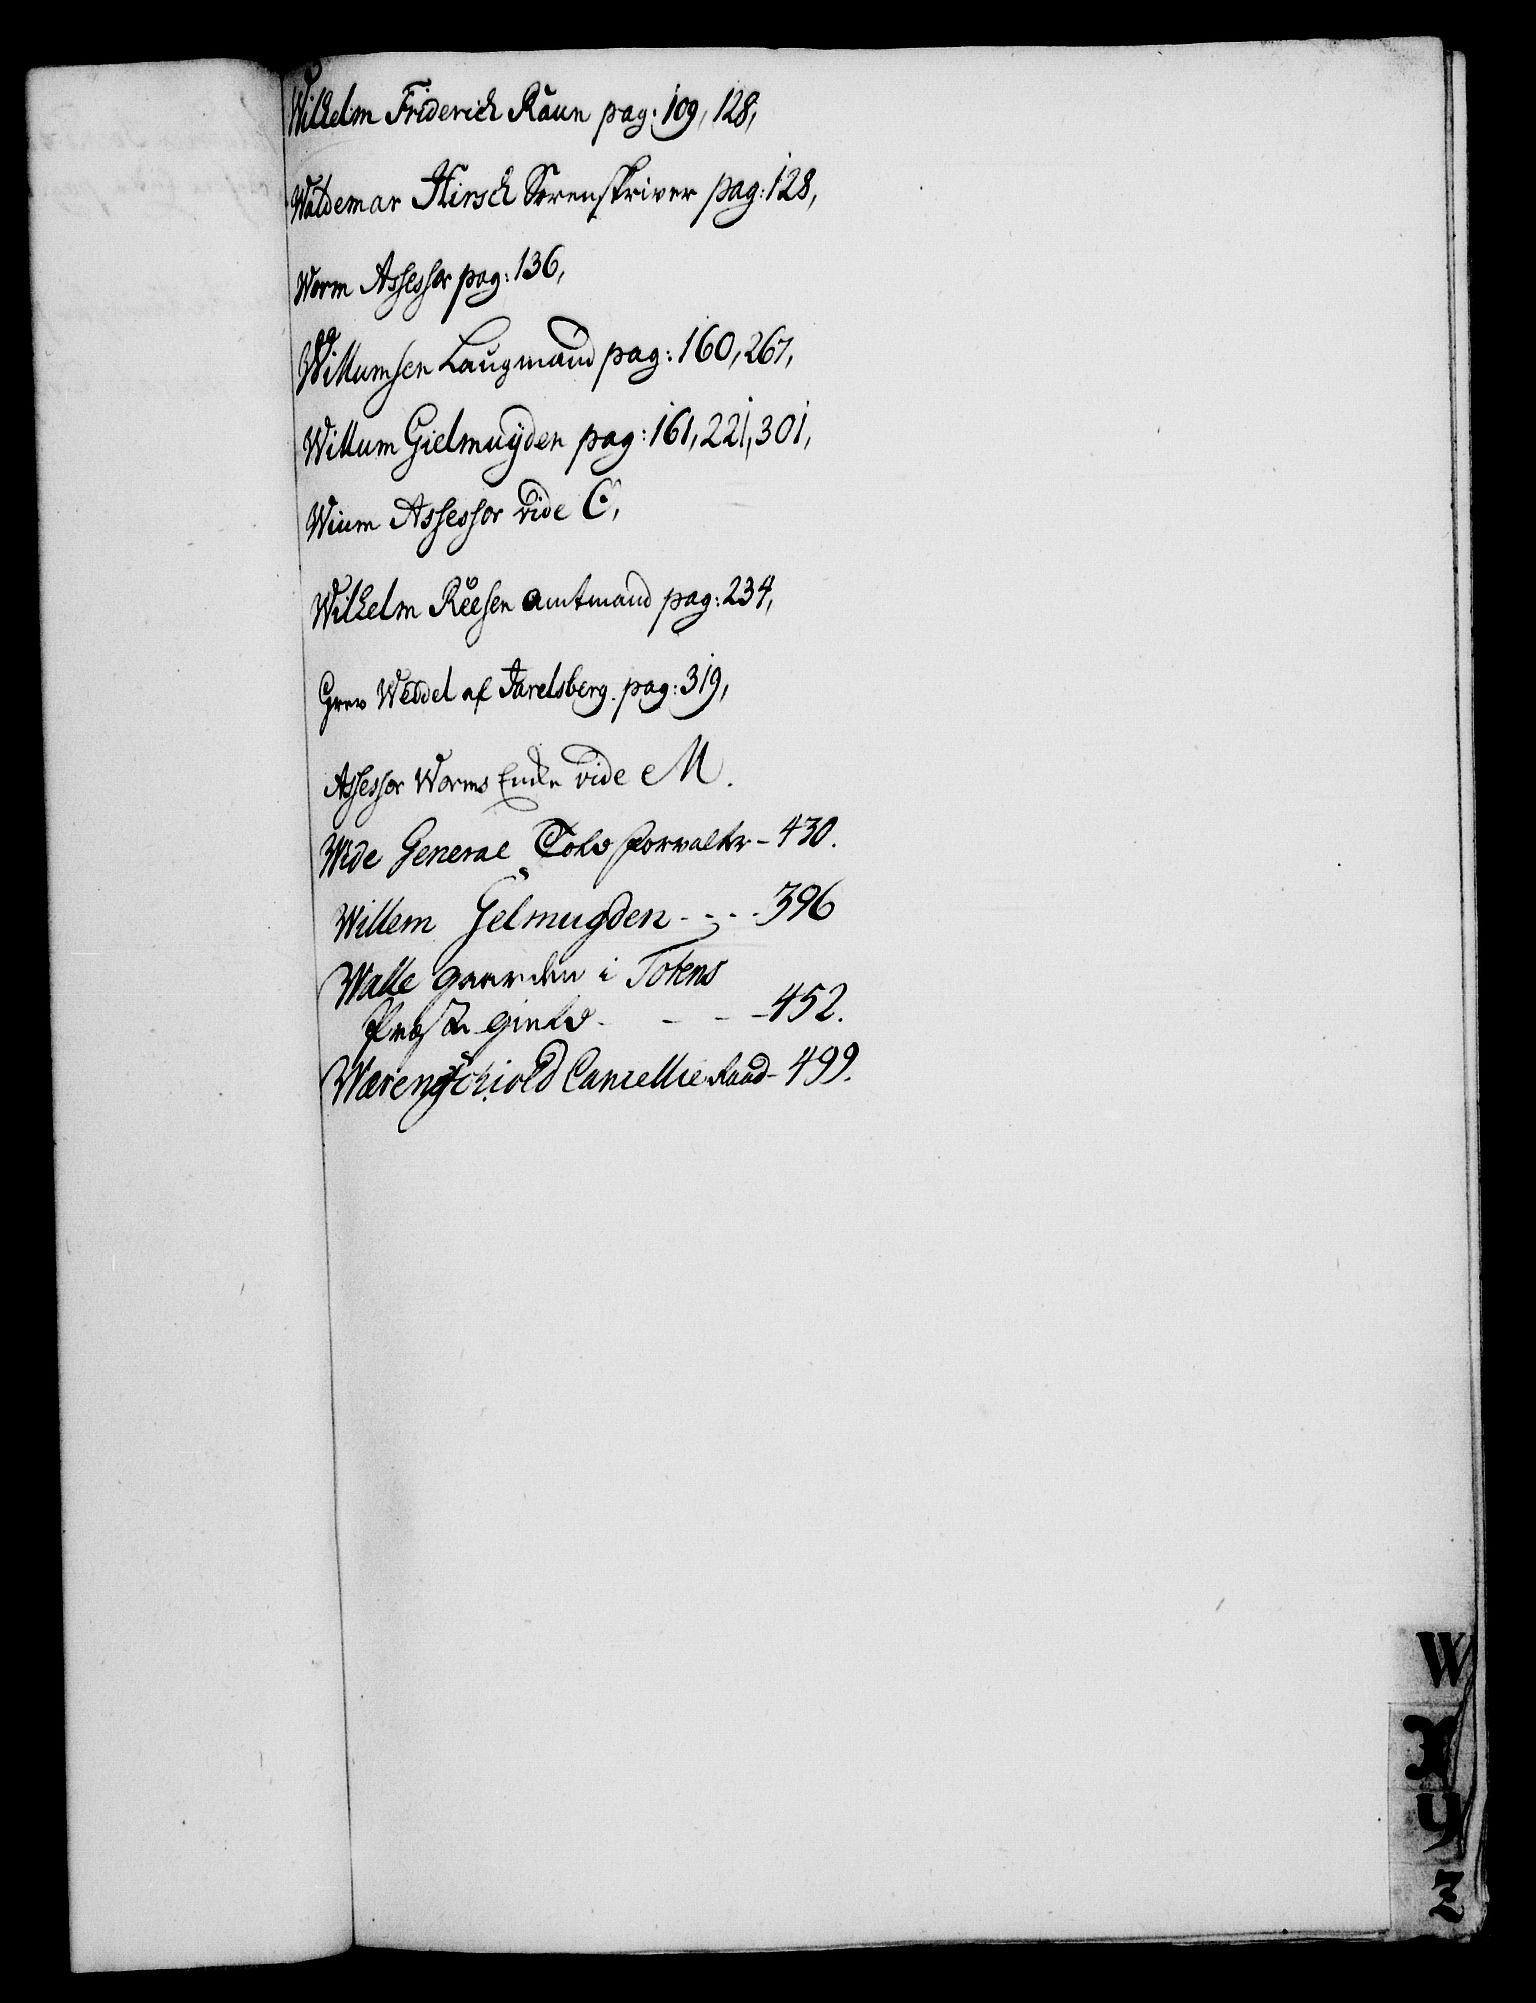 Wilhelm Friderich Raun pag: 109, 128,
Waldemar Hirsch Sorenskriver pag: 128,
Worm Assessor pag: 136,
Willumsen Laugmand pag: 160, 267,
Willum Gielmuyden pag: 161, 221, 301,
Wium Assessor vide C,
Wilhelm Reesen amtmand pag: 234,
Grev Weddel af Jarelsberg. pag: 319,
Assessor Worms Enke vide M.
Wide General Told forvalter - 430.
Willem Gelmugden - - - - 396
Walle gaarden i Totens
Præste gield - - - - 452.
Wærenschiold Cancellie Raad - 499.
W
X
Y
Z